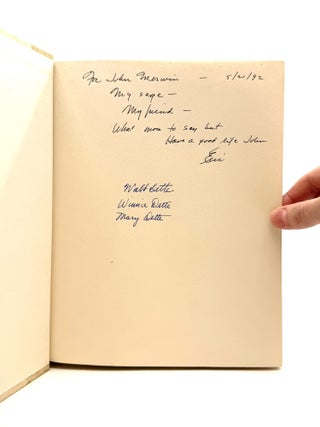 For John Merwin — 5/21/92
My sage —
My friend —
What more to say but
Have a good life John
Eric
Walt Dette
Winnie Dette
Mary Dette